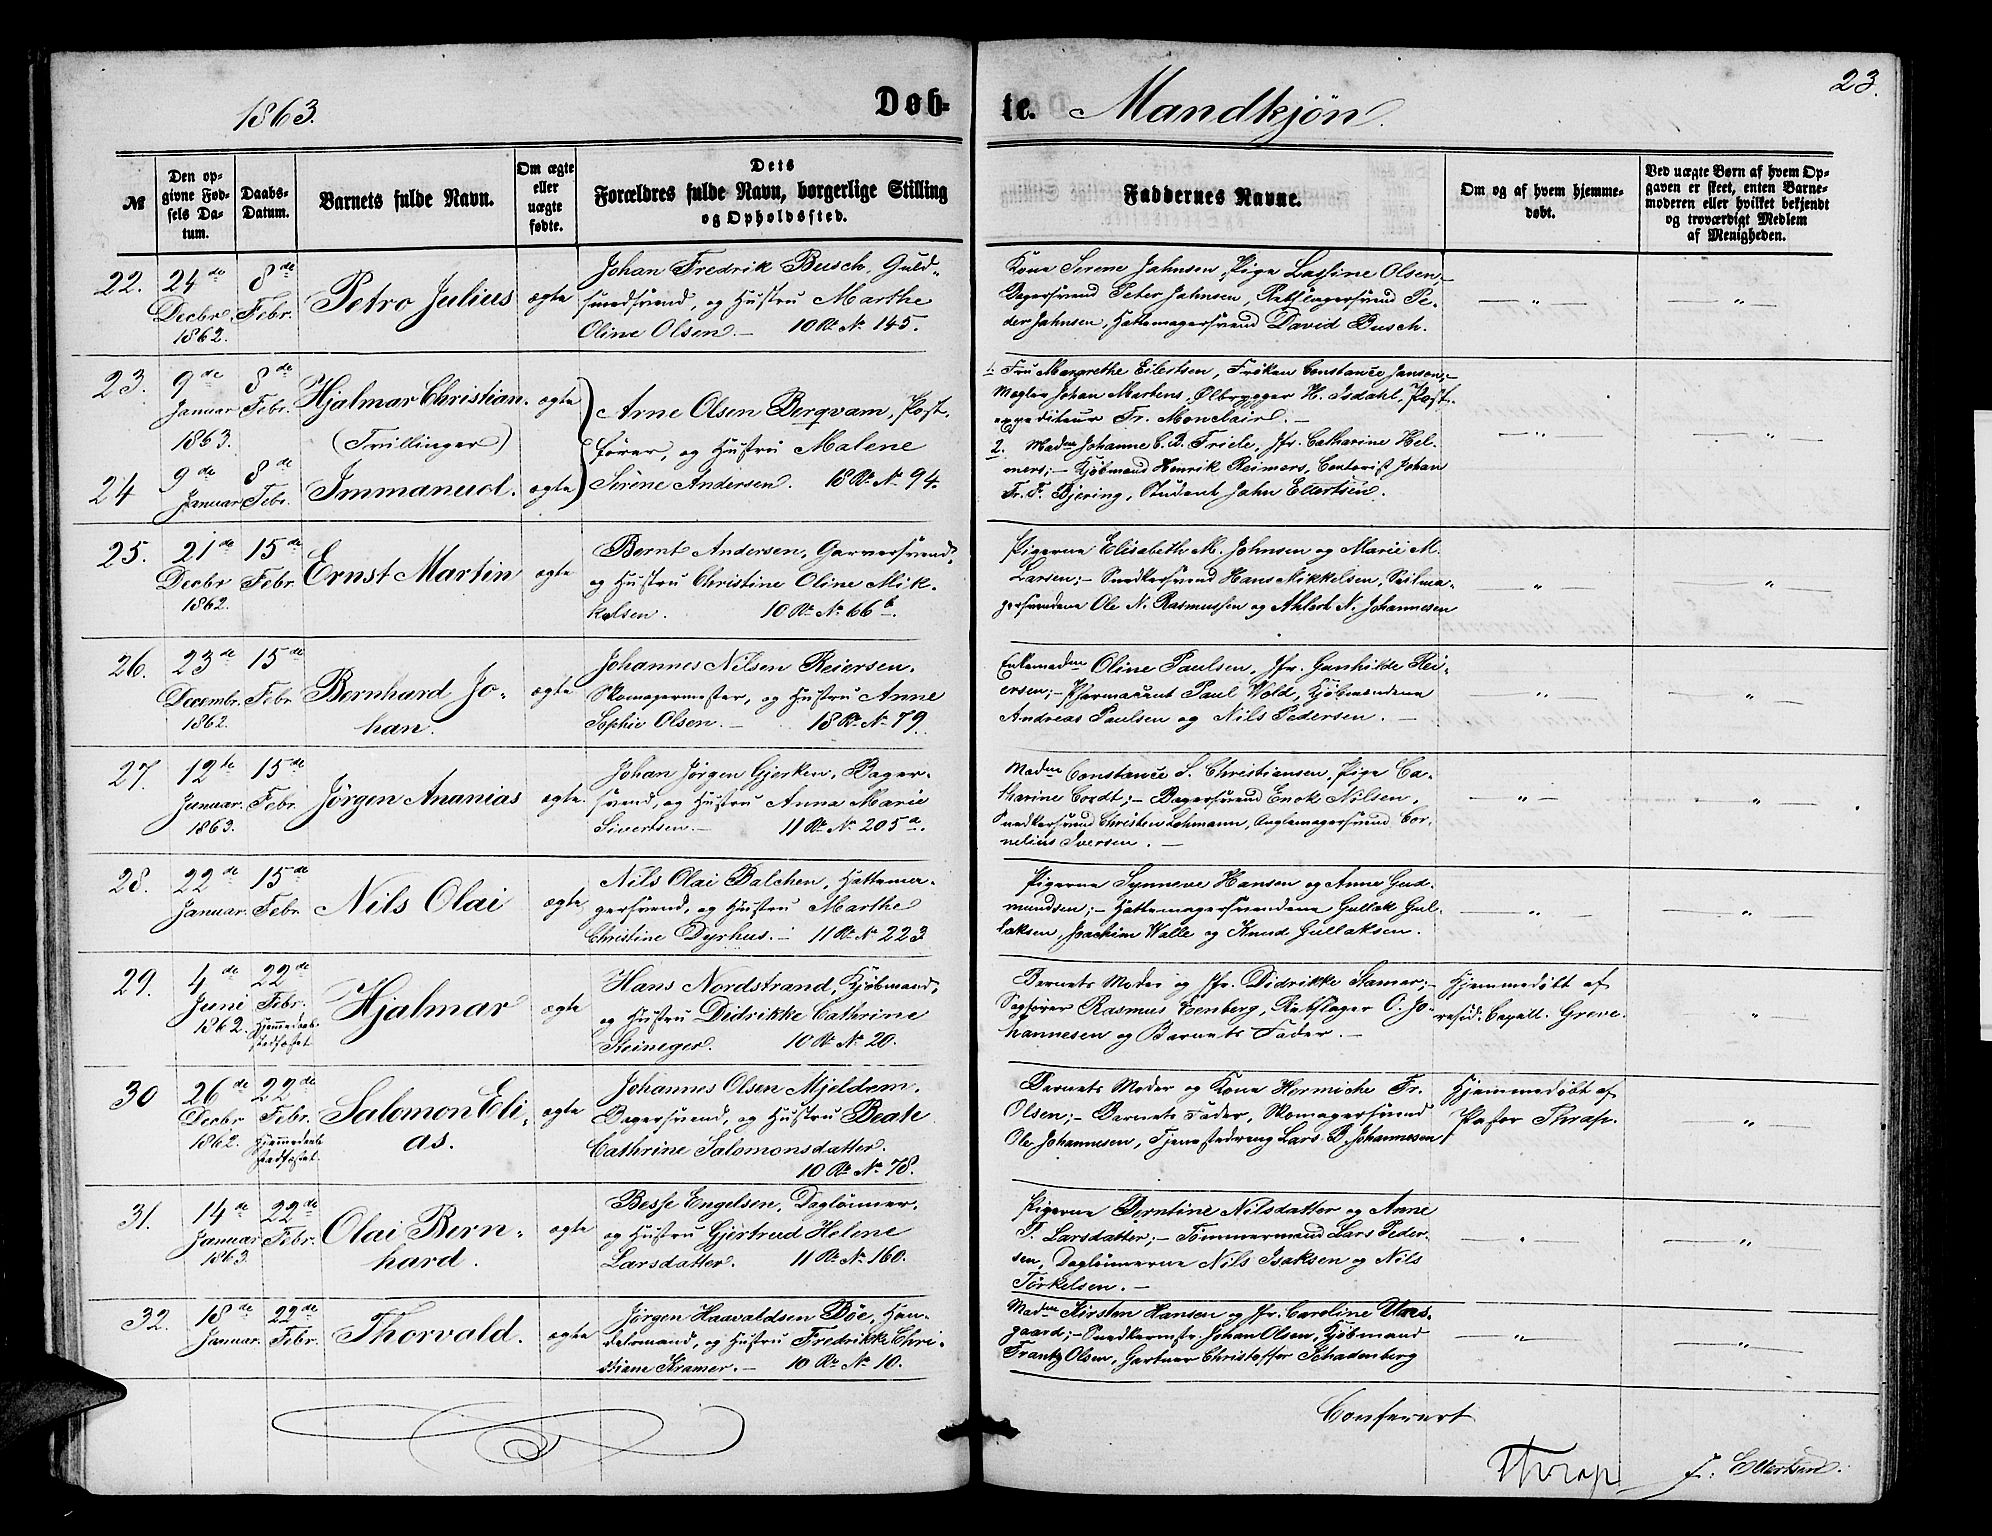 23.
1863.
Døb-
te. Mandkjøn.
№
Den op-
givne Fød-
sels Da-
tum.
Daabs-
Datum.
Barnets fulde Navn.
Om ægte
eller
uægte
fødte.
Dets
Forældres fulde Navn, borgerlige Stilling
og Opholdssted.
Faddernes Navne.
Om og af hvem hjemme-
døbt.
Ved uægte Børn af hvem Op-
gaven er skeet, enten Barne-
moderen eller hvilket bekjendt
og troværdigt Medlem
af Menigheden.
22.
24de
Decbr.
1862.
8de
Febr.
Petro Julius
ægte
Johan Fredrik Busch, Guld-
smedsvend, og Hustru Marthe
Oline Olsen. – 10 Rd. № 145.
Kone Serene Jahnsen, Pige Lassine Olsen;–
Bagersvend Peter Jahnsen, Rebslagersvend Pe-
der Jahnsen, Hattemagersvend David Busch.
— „ —
— „ —
23.
9de
Januar
1863.
8de
Febr.
Hjalmar Christian.
(Trillinger)
ægte
24
9de
Januar
8de
Febr.
Immanuel.
ægte
Arne Olsen Bergvam, Post-
fører, og Hustru Malene
Sørene Andersen. 18 Rd. № 94.
1. Fru Margrethe Eilertsen, Frøken Constance Janson;–
Mægler Johan Martens, Ølbrygger H. Isdahl, Post-
expediteur Fr. Monclair. –
2. Madm Johanne C. B. Friele, Jfr. Catharine Hel-
mers;– Kjøbmand Henrik Reimers, Contorist Johan
Fr. F. Bjering, Student Jahn Ellertsen.
— „ —
— „ —
25.
21de
Decbr
1862.
15de
Febr.
Ernst Martin
ægte
Bernt Andersen, Garversvend,
og Hustru Christine Oline Mik-
kelsen. 10 Rd. № 66b.
Pigerne Elisabeth M. Johnsen og Marie M.
Larsen;– Snedkersvend Hans Mikkelsen, Seilma-
gersvendene Ole N. Rasmussen og Ahlert N. Johannesen
— „ —
— „
26.
23de
Decembr.
1862.
15de
Febr
Bernhard Jo-
han.
ægte
Johannes Nilsen Reiersen,
Skomagermester, og Hustru Anne
Sophie Olsen. – 18 Rd. № 79.
Enkemadm Oline Paulsen, Jfr. Gunhilde Rei-
ersen;– Pharmaceut Paul Wold, Kjøbmændene
Andreas Paulsen og Nils Pedersen. –
— „ —
— „ —
27.
12te
Januar.
1863.
15de
Febr
Jørgen Ananias
ægte.
Johan Jørgen Gjerken, Bager-
svend, og Hustru Anna Marie
Sivertsen. – 11 Rd. № 205a.
Madm Constance S. Christiansen, Pige Ca-
tharine Cordt;– Bagersvend Enok Nilsen,
Snedkersvend Christen Lohmann, Cor-
nelius Iversen. –
— „ —
— „ —
28.
22de
Januar.
15de
Febr
Nils Olai
ægte
Nils Olai Balchen, Hattema-
gersvend, og Hustru Marthe
Christine Dyrhus. – 11 Rd. № 223
Pigerne Synneve Hansen og Anne Gud-
mundsen;– Hattemagersvendene Gullak Gul-
laksen, Joachim Walle og Knud Gullaksen.
— „ —
— „ —
29.
4de
Juni
1862.
22de
Febr.
Hjemmedaab
stadfæstet.
Hjalmar
ægte
Hans Nordstrand, Kjøbmand,
og Hustru Didrikke Cathrine
Steineger. 10 Rd. № 20.
Barnets Moder og Jfr. Didrikke Samer;–
Sagfører Rasmus Eenberg, Rebslager O. Jo-
hannesen og Barnets Fader. –
Hjemmedøbt af
resid: Capell. Greve.
„
30
26de
Decbr
1862.
22de
Febr.
Hjemmedaab
stadfæstet.
Salomon Eli-
as.
ægte
Johannes Olsen Mjeldem,
Bagersvend, og Hustru Beate
Cathrine Salomonsdatter.
10 Rd. № 78.
Barnets Moder og Kone Hermiche Fr.
Olsen;– Barnets Fader, Skomagersvend
Ole Johannesen, Tjenestedreng Lars B. Johannesen
Hjemmedøbt af
Pastor Thrap.
— „ —
31.
14de
Januar
1863.
22de
Febr.
Olai Bern-
hard.
ægte
Besse Engelsen, Daglønner,
og Hustru Gjertrud Helene
Larsdatter. 11 Rd. № 160.
Pigerne Berntine Nilsdatter og Anne
P. Larsdatter;– Tømmermand Lars Peder-
sen, Daglønnerne Nils Isaksen og Nils
Torkelsen. –
— „ —
— „ —
32.
18de
Januar.
22de
Febr.
Thorvald.
ægte
Jørgen Haavaldsen Bøe, Han-
delsmand, og Hustru Fredrikke Chri-
stiane Kramer. – 10 Rd. № 10.
Madm Kirsten Hansen og Jfr. Caroline Utes-
gaard;– Snedkermstr. Johan Olsen, Kjøbmand
Frantz Olsen, Gartner Christoffer Schadenberg
— „ —
— „ —
Confereret
Thrap
J. Ellertsen.